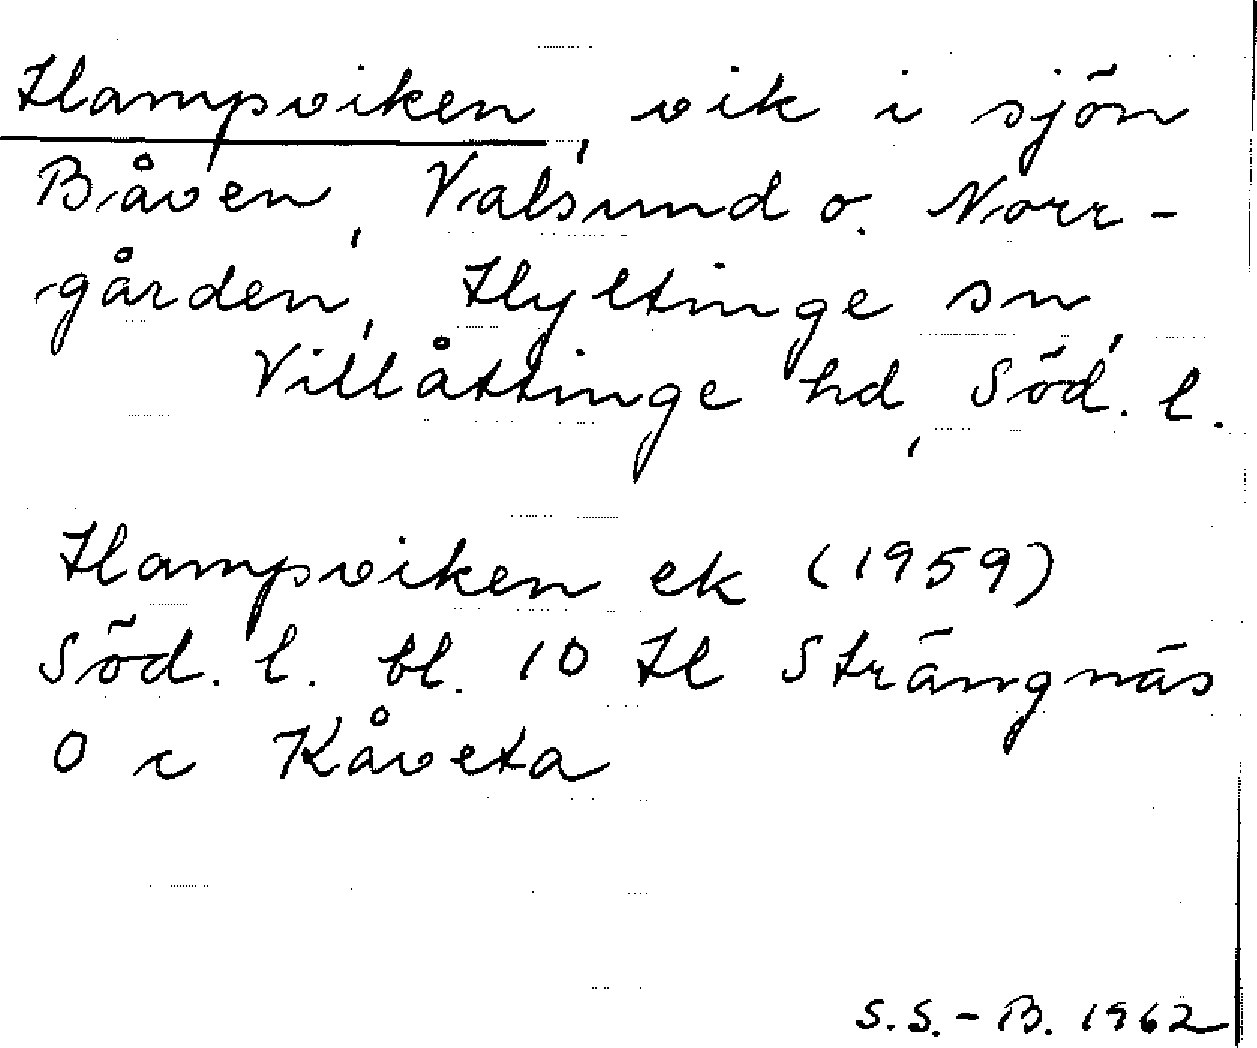 Hampviken, vik i sjön
Båven, Valsund o. Norr-
gården, Hyltinge sn,
Villåttinge hd, Söd. l.
Hampviken ek (1959)
Söd. l. bl. 10 Hl Strängnäs
O c Kåveta
S.S.-B. 1962